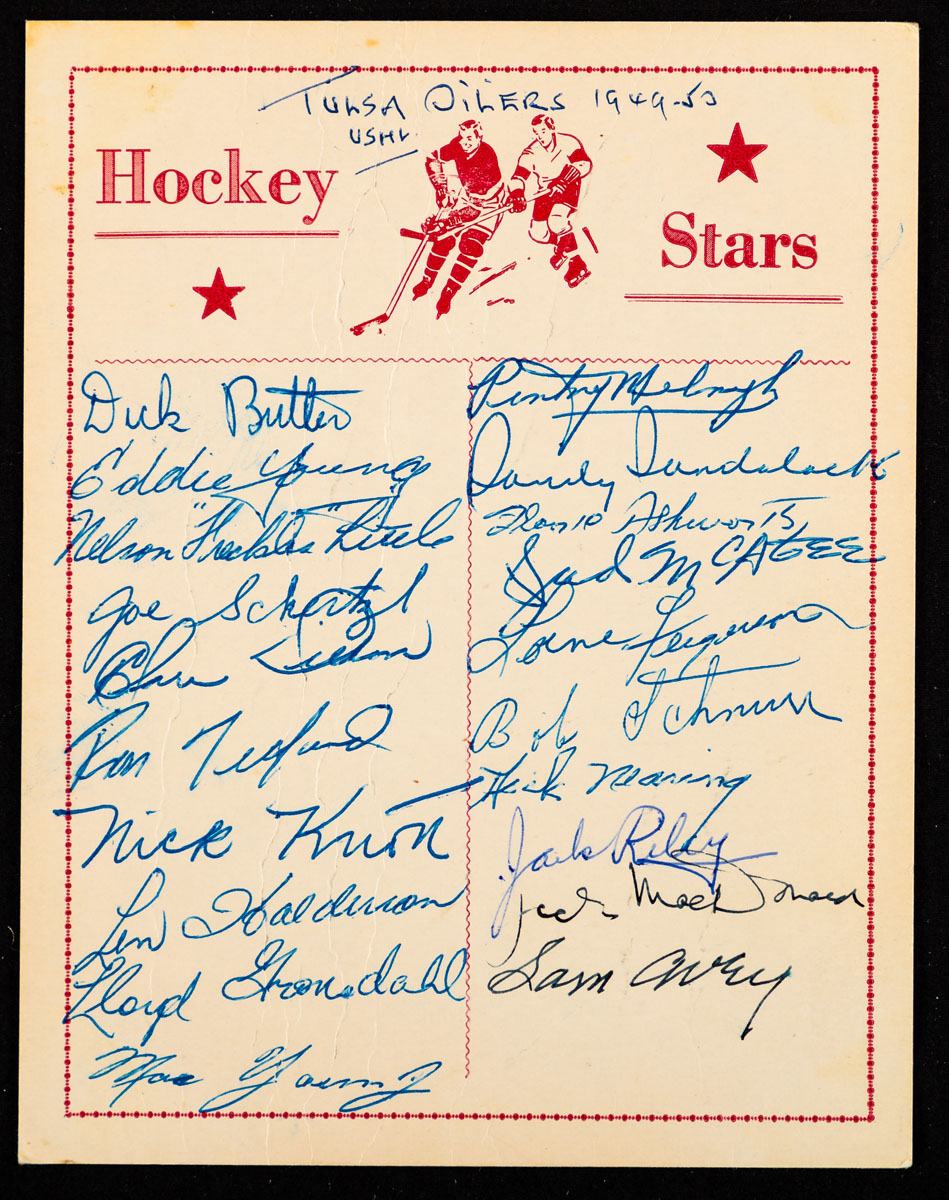 TULSA OILERS 1949-50
USHL
Hockey
Stars
Dick Butler
Eddie Young
Nelson "Freckles" Little
Joe Schertzl
Ron Telford
Nick Knott
Len Halderson
Lloyd Gronsdahl
Mac Young
Pinky Melnyk
Sandy Sandalack
Flario Ashworth
Jud McATEE
Lorne Ferguson
Bob Schnurr
Hick Nearing
Jack Riley
Jack MacDonald
Sam Avey